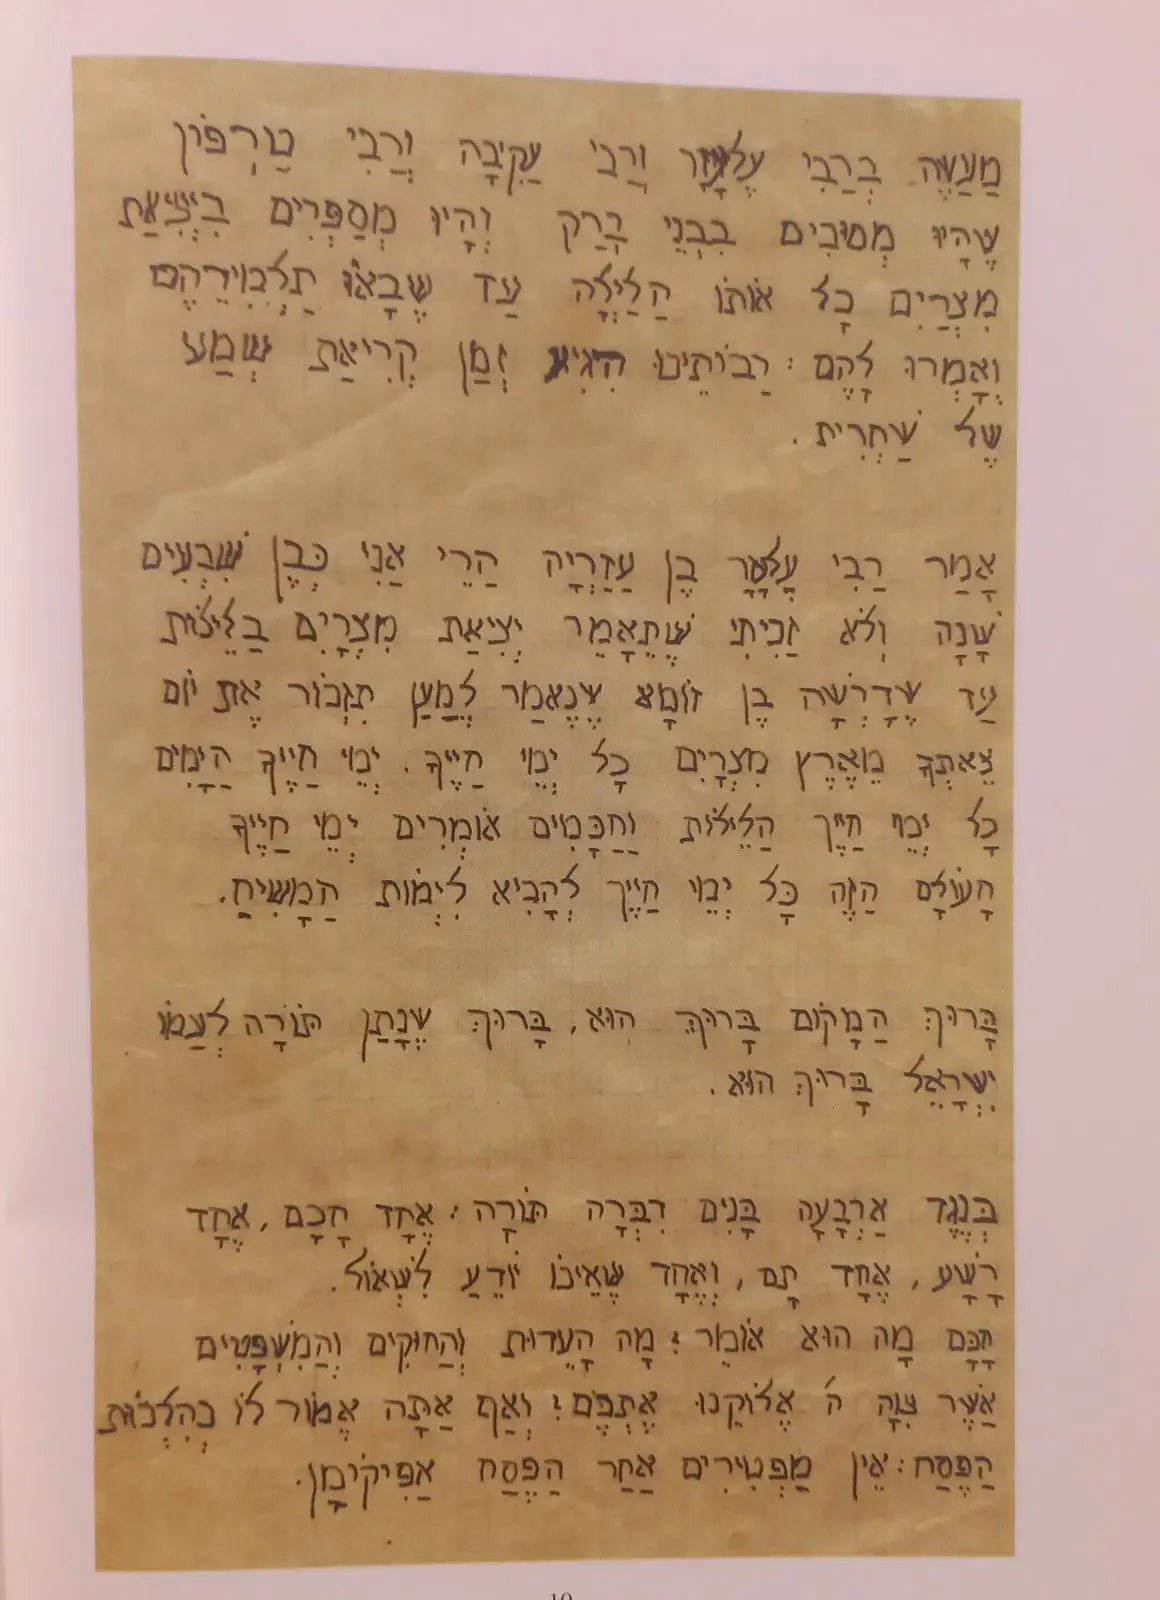 מַעֲשֶׂה בְּרַבִּי עֶלְעָזָר וְרַבִּי עֲקִיבָה וְרַבִּי טַרְפוֹן
שֶׁהָיוּ מְסוּבִים בִּבְנֵי בְּרַק וְהָיוּ מְסַפְּרִים בִּיְצִיאַת
מִצְרַיִם כָל אוֹתוֹ הַלַיְלָה עַד שֶׁבָאוּ תַלְמִידֵיהֶם
וְאָמְרוּ לָהֶם : רַבּוֹתֵינוּ הִגִיע זְמַן קְרִיאַת שְׁמַע
שֶׁל שַׁחְרִית .
אָמַר רַבִּי עֶלְעָזָר בֶּן עַזַרְיָה הַרֵי אַנִי כְּבֶן שִׁבְעִים
שָׁנָה וְלֹא זַכִיתִי שֶׁתֵאָמֵר יְצִיאַת מִצְרָיִם בַּלֵילוֹת
עַד שֶׁדָרְשָׁה בֶּן זוֹמָא שֶׁנֶאמַר לְמַעַן תִזְכּוֹר אֶת יוֹם
צֵאתְךָ מֵאֶרֶץ מִצְרָיִם כָל יְמֵי חַיֶיךָ . יְמֵי חַיֶיךָ הַיָמִים
כָל יְמֵי חַיֶיךָ הַלֵילוֹת וַחַכָמִים אוֹמְרִים יְמֵי חַיֶיךָ
הָעוֹלָם הַזֶה כָּל יְמֵי חַיֶיךָ לְהָבִיא לִימוֹת הַמָשִׁיחַ .
בָּרוּךְ הַמָקוֹם בָּרוּךְ הוּא , בָּרוּךְ שֶׁנָתַן תּוֹרָה לְעַמוֹ
יִשְׂרָאֵל בָּרוּךְ הוּא .
כְּנֶגֶד אַרְבָּעָה בָּנִים דִבְּרָה תּוֹרָה : אֶחָד חָכָם , אֶחָד
רָשָׁע , אֶחָד תָם , וְאֶחָד שֶׁאֵינוֹ יוֹדֵעַ לִשְׁאוֹל .
חָכָם מָה הוּא אוֹמֵר : מָה הָעֵדוּת וְהַחוּקִים וְהַמִשְׁפָּטִים
אֲשֶׁר צִוָה ה' אֱלוֹקֵנוּ אֶתְכֶם : וְאַף אַתָּה אֱמוֹר לוֹ כְּהִלְכוֹת
הַפֶּסַח : אֵין מַפְטִירִים אַחַר הַפֶּסַח אַפִיקִימָן .